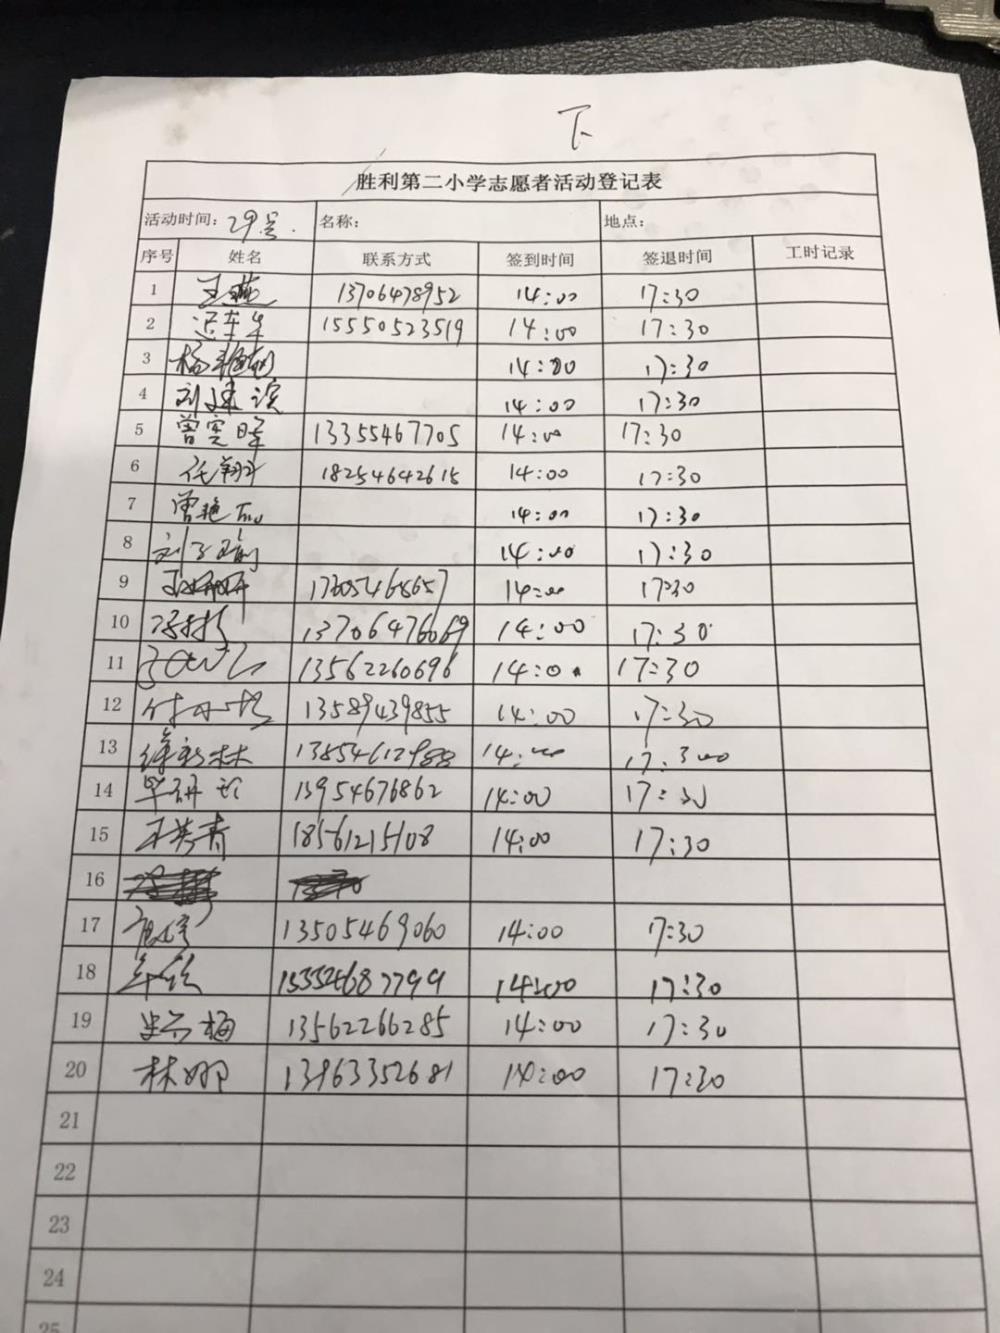 下
胜利第二小学志愿者活动登记表
活动时间: 29号. 名称: 地点:
序号 姓名 联系方式 签到时间 签退时间 工时记录
1 王燕 13706478952 14:00 17:30
2 15550523519 14:00 17:30
3 14:00 17:30
4 刘建滨 14:00 17:30
5 13355467705 14:00 17:30
6 任翔 18254642615 14:00 17:30
7 曾艳 14:00 17:30
8 刘子瑜 14:00 17:30
9 17605468657 14:00 17:30
10 13706476069 14:00 17:30
11 13562260696 14:00 17:30
12 13589439855 14:00 17:30
13 徐新林 13854612988 14:00 17:300
14 毕研 13954676862 14:00 17:30
15 王美青 18561215108 14:00 17:30
16
17 13505469060 14:00 17:30
18 15552687799 14:00 17:30
19 13562266285 14:00 17:30
20 林娜 13963352681 14:00 17:30
21
22
23
24
25